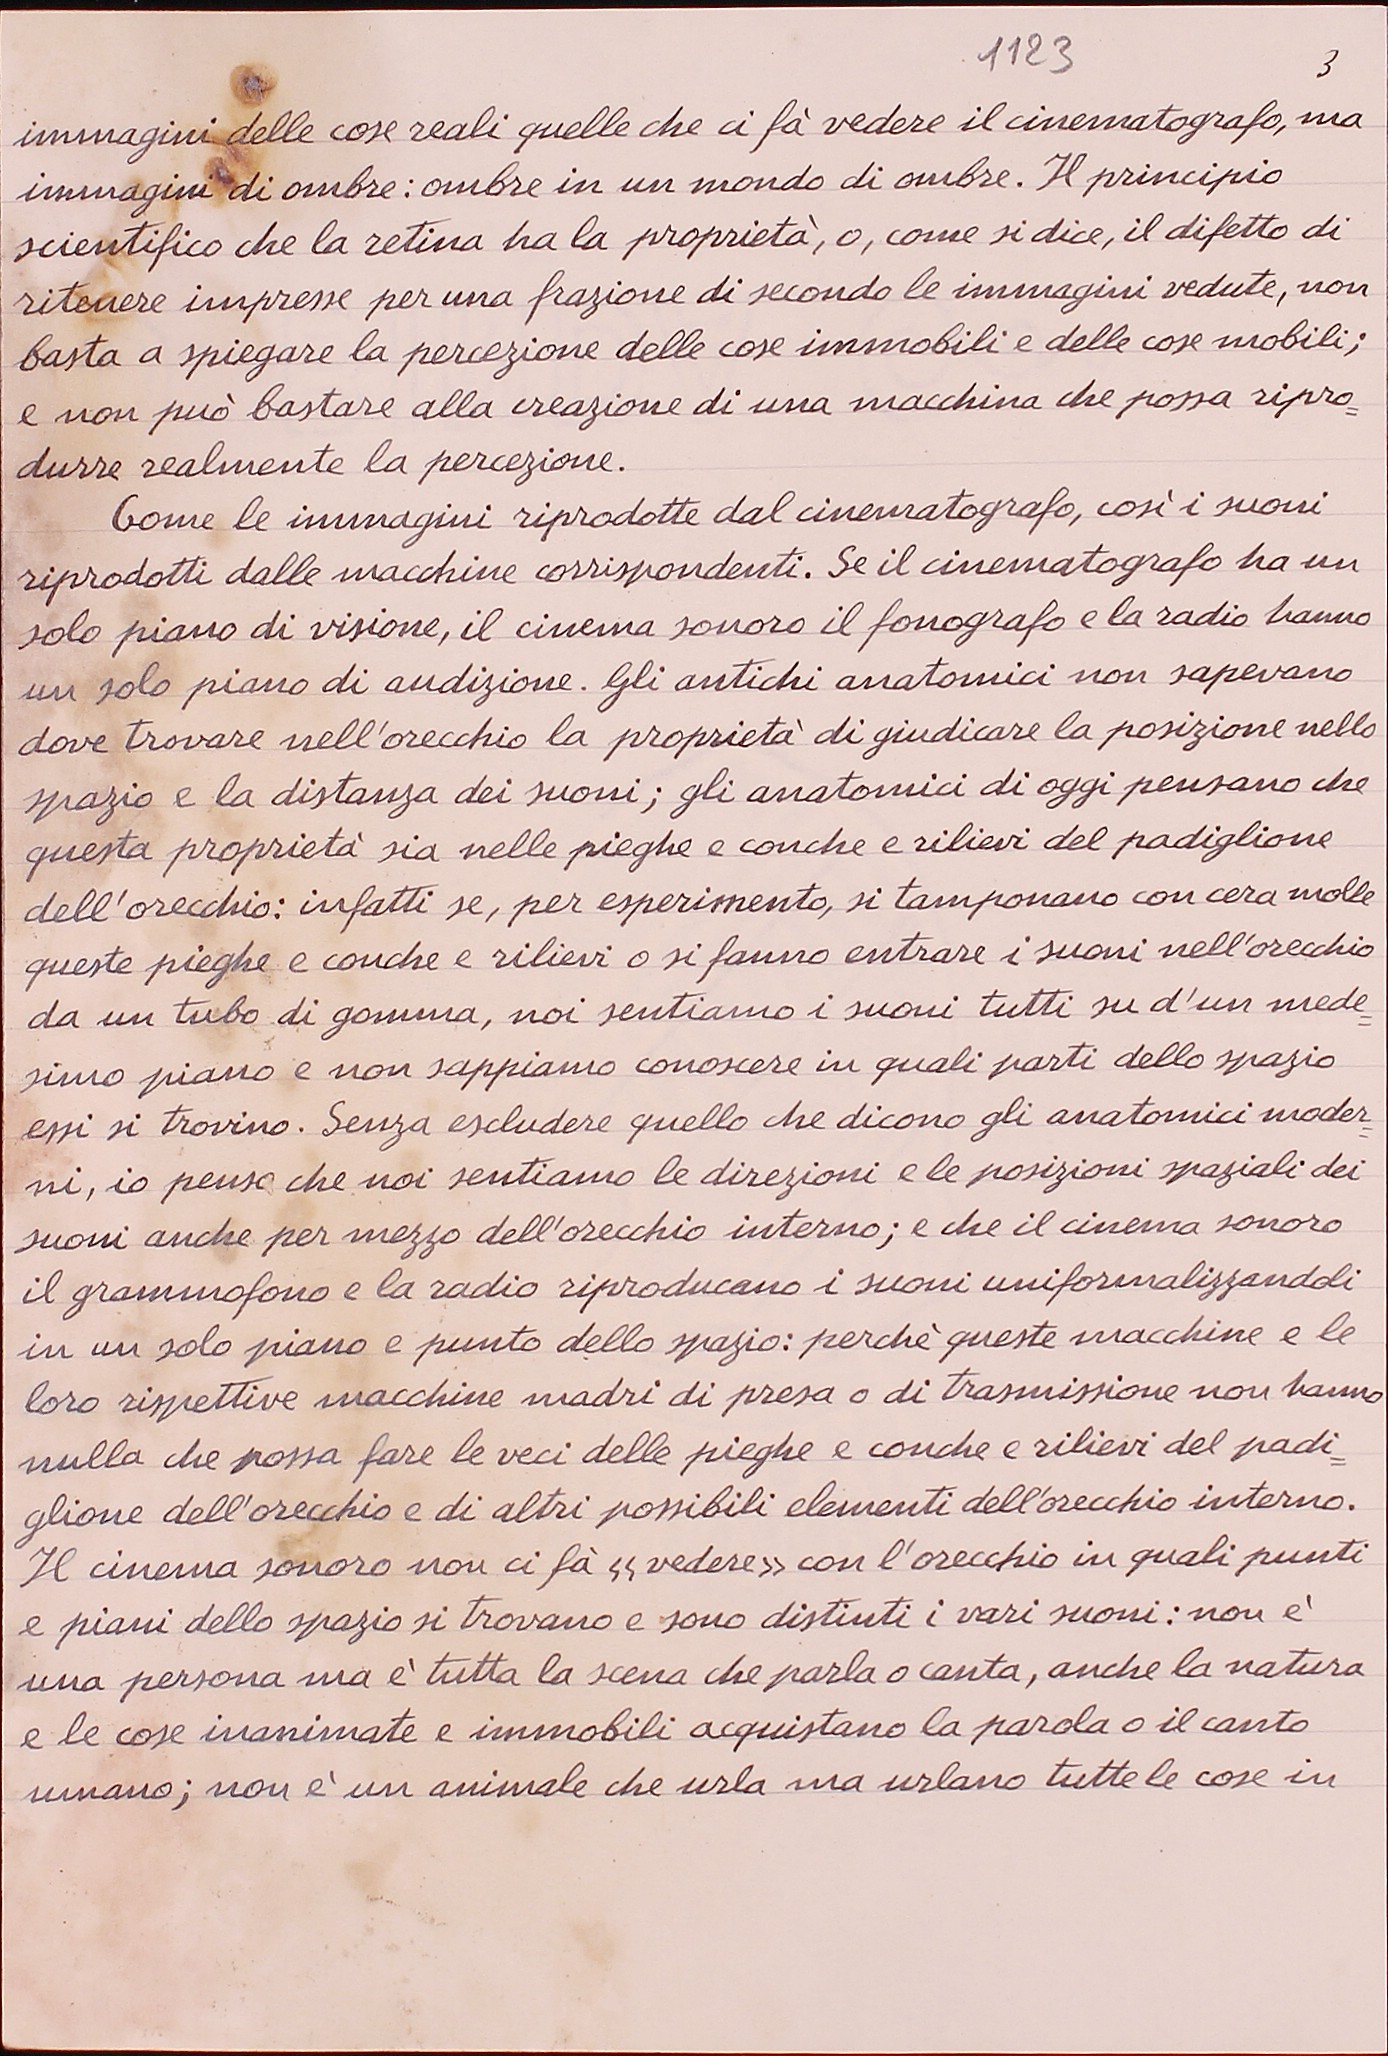 1123
3
immagini delle cose reali quelle che ci fà vedere il cinematografo, ma
immagini di ombre: ombre in un mondo di ombre. Il principio
scientifico che la retina ha la proprietà, o, come si dice, il difetto di
ritenere impresse per una frazione di secondo le immagini vedute, non
basta a spiegare la percezione delle cose immobili e delle cose mobili;
e non può bastare alla creazione di una macchina che possa ripro=
durre realmente la percezione.
Come le immagini riprodotte dal cinematografo, così i suoni
riprodotti dalle macchine corrispondenti. Se il cinematografo ha un
solo piano di visione, il cinema sonoro il fonografo e la radio hanno
un solo piano di audizione. Gli antichi anatomici non sapevano
dove trovare nell'orecchio la proprietà di giudicare la posizione nello
spazio e la distanza dei suoni; gli anatomici di oggi pensano che
questa proprietà sia nelle pieghe e conche e rilievi del padiglione
dell'orecchio: infatti se, per esperimento, si tamponano con cera molle
queste pieghe e conche e rilievi o si fanno entrare i suoni nell'orecchio
da un tubo di gomma, noi sentiamo i suoni tutti su d'un mede=
simo piano e non sappiamo conoscere in quali parti dello spazio
essi si trovino. Senza escludere quello che dicono gli anatomici moder=
ni, io penso che noi sentiamo le direzioni e le posizioni spaziali dei
suoni anche per mezzo dell'orecchio interno; e che il cinema sonoro
il grammofono e la radio riproducano i suoni uniformalizzandoli
in un solo piano e punto dello spazio: perchè queste macchine e le
loro rispettive macchine madri di presa o di trasmissione non hanno
nulla che possa fare le veci delle pieghe e conche e rilievi del padi=
glione dell'orecchio e di altri possibili elementi dell'orecchio interno.
Il cinema sonoro non ci fà «vedere» con l'orecchio in quali punti
e piani dello spazio si trovano e sono distinti i vari suoni: non è
una persona ma è tutta la scena che parla o canta, anche la natura
e le cose inanimate e immobili acquistano la parola o il canto
umano; non è un animale che urla ma urlano tutte le cose in